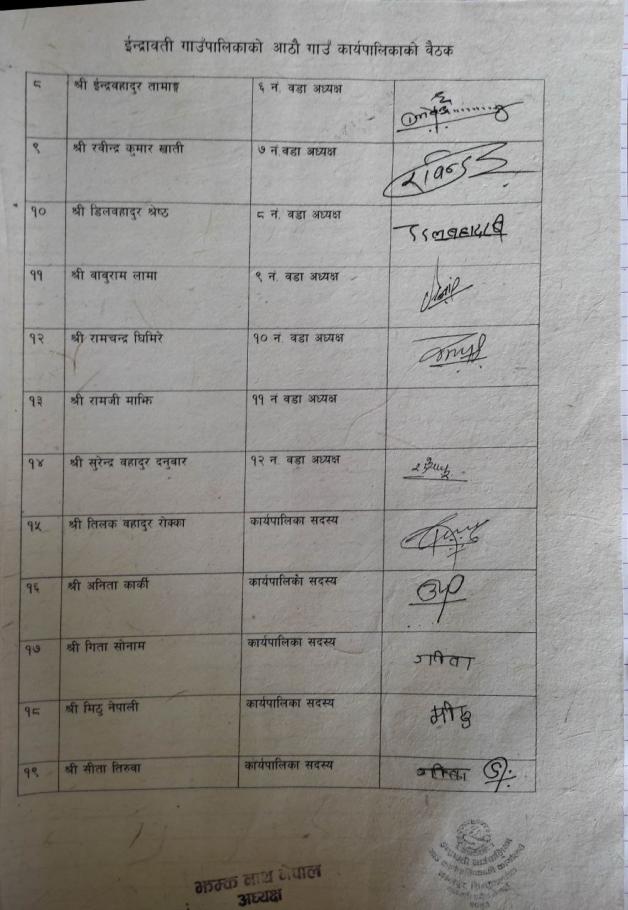 ईन्द्रावती गाउँपालिकाको आठौ गाउँ कार्यपालिकाको बैठक
८ श्री ईन्द्रवहादुर तामाङ्ग ६ नं. वडा अध्यक्ष
९ श्री रवीन्द्र कुमार खाती ७ नं.वडा अध्यक्ष रविन्द्र
१० श्री डिलवहादुर श्रेष्ठ ८ नं. वडा अध्यक्ष
११ श्री वाबुराम लामा ९ नं. वडा अध्यक्ष
१२ श्री रामचन्द्र घिमिरे १० नं. वडा अध्यक्ष
१३ श्री रामजी माझि ११ नं वडा अध्यक्ष
१४ श्री सुरेन्द्र वहादुर दनुवार १२ नं. वडा अध्यक्ष
१५ श्री तिलक वहादुर रोक्का कार्यपालिका सदस्य
१६ श्री अनिता कार्की कार्यपालिका सदस्य
१७ श्री गिता सोनाम कार्यपालिका सदस्य गिता
१८ श्री मिठु नेपाली कार्यपालिका सदस्य मीठु
१९ श्री सीता तिरुवा कार्यपालिका सदस्य
झम्क नाथ नेपाल
अध्यक्ष